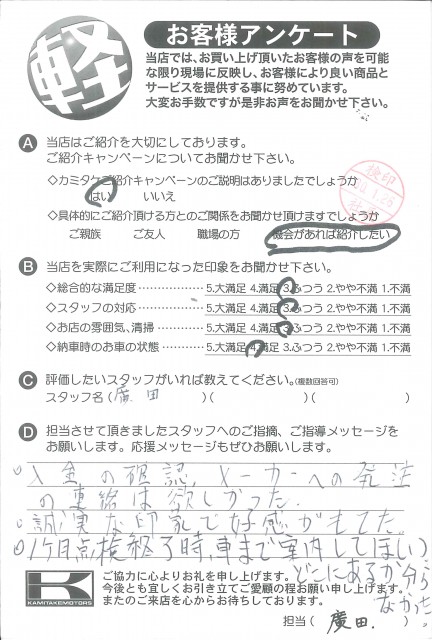 軽
お客様アンケート
当店では、お買い上げ頂いたお客様の声を可能
な限り現場に反映し、お客様により良い商品と
サービスを提供する事に努めています。
大変お手数ですが是非お声をお聞かせ下さい。
A 当店はご紹介を大切にしております。
ご紹介キャンペーンについてお聞かせ下さい。
◇カミタケご紹介キャンペーンのご説明はありましたでしょうか
はい いいえ
◇具体的にご紹介頂ける方とのご関係をお聞かせ頂けますでしょうか
ご親族 ご友人 職場の方 機会があれば紹介したい
検印
B 当店を実際にご利用になった印象をお聞かせ下さい。
◇総合的な満足度 ………………… 5.大満足 4.満足 3.ふつう 2.やや不満 1.不満
◇スタッフの対応 ………………… 5.大満足 4.満足 3.ふつう 2.やや不満 1.不満
◇お店の雰囲気、清掃 …………… 5.大満足 4.満足 3.ふつう 2.やや不満 1.不満
◇納車時のお車の状態 …………… 5.大満足 4.満足 3.ふつう 2.やや不満 1.不満
C 評価したいスタッフがいれば教えてください。(複数回答可)
スタッフ名 ( 廣田 )( )( )
D 担当させて頂きましたスタッフへのご指摘、ご指導メッセージを
お願いします。応援メッセージもぜひお願いします。
入金の確認、メーカーへの発注
の連絡は欲しかった。
誠実な印象で好感がもてた。
1ヶ月点検終了時、車まで案内してほしい
どこにあるか分から
なかった。
K
KAMITAKEMOTORS
ご協力に心よりお礼を申し上げます。
今後とも宜しくお引き立てご愛顧の程お願い申し上げます。
またのご来店を心からお待ちしております。
担当 ( 廣田. )